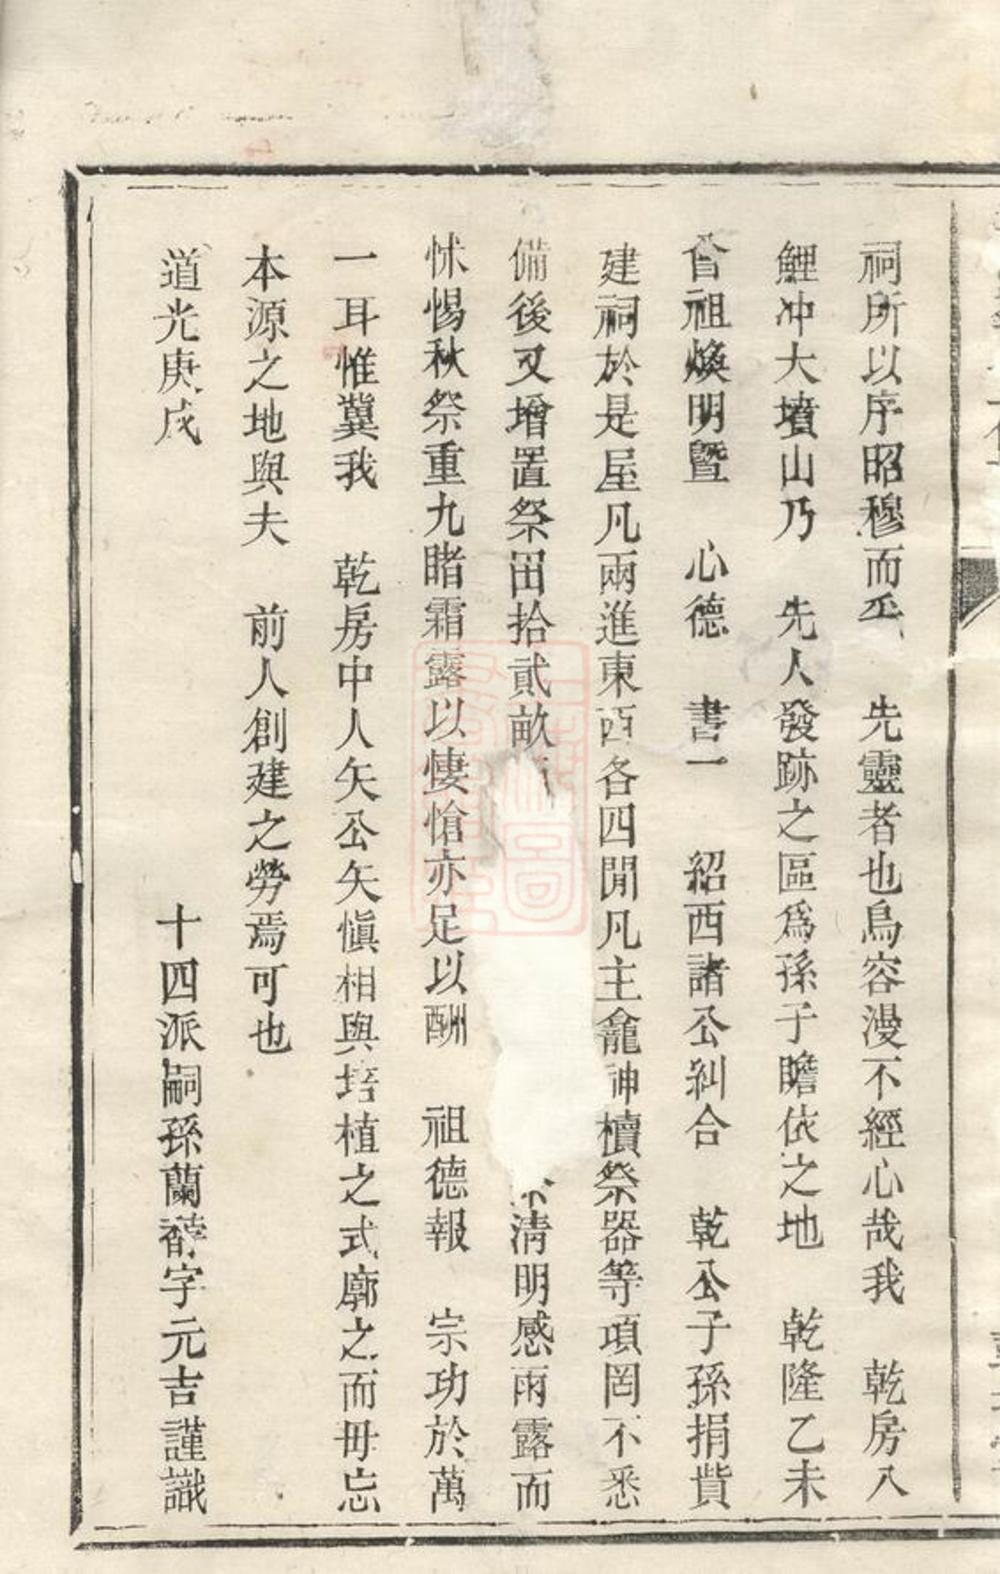 祠所以序昭穆而妥　先靈者也烏容漫不經心哉我　乾房入
鯉冲大墳山乃　先人發跡之區爲孫子瞻依之地　乾隆乙未
合祖煥明暨　心德　書一　紹西諸公糾合　乾公子孫捐貲
建祠於是屋凡兩進東西各四間凡主龕神櫝祭器等項罔不悉
備後又增置祭田拾貳畝
清明感雨露而
怵惕秋祭重九睹霜露以悽愴亦足以酬　祖德報　宗功於萬
一耳惟冀我　乾房中人矢公矢愼相與培植之式廓之而毋忘
本源之地與夫　前人創建之勞焉可也
道光庚戌
十四派嗣孫蘭馥字元吉謹識